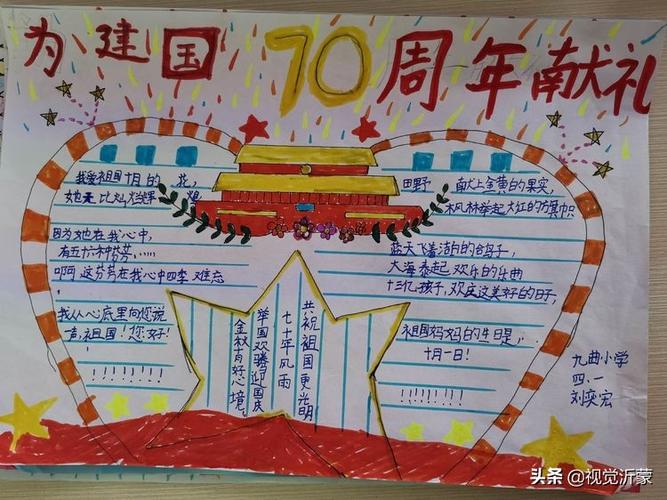 为建国70周年献礼
我爱祖国十月的 花,
她是比灿烂辉煌
因为她在我心中,
有五十六种芬芳......
啊 这芬芳在我心中四季难忘
!
我从心底里向您说
声,祖国!您好!
!
!!!!!!!
田野 献上金黄的果实,
枫林举起大红的旗帜
蓝天飞着洁白的鸽子,
大海奏起欢乐的乐曲
十三亿孩子,欢庆这美好的日子,
祖国妈妈的生日是,..
十月一日!
!!!!!!!
共祝祖国更光明
七十年风雨
举国欢腾迎国庆
金秋有好心境。
九曲小学
四.一
刘奕宏
头条@视觉沂蒙